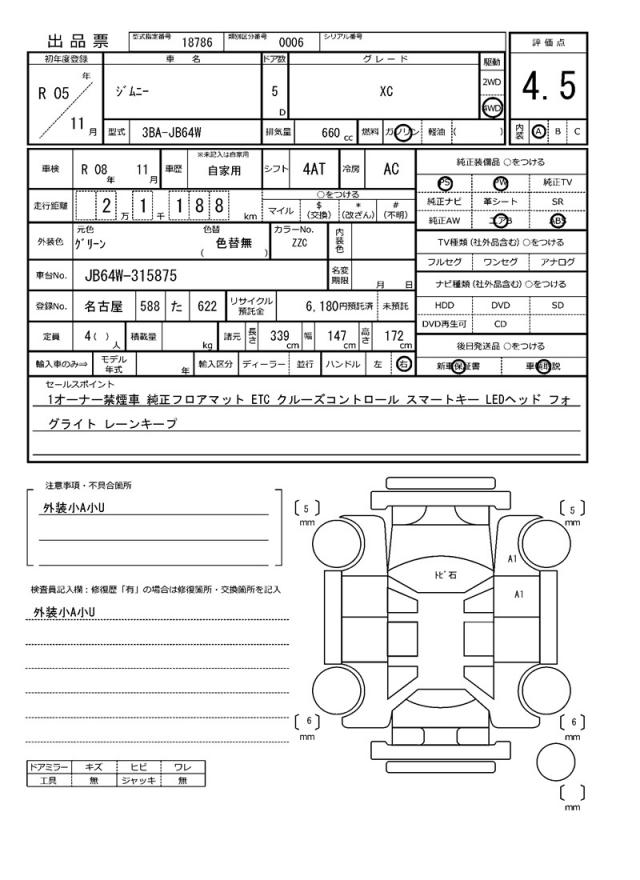 出品票 型式指定番号 18786 類別区分番号 0006 シリアル番号
評価点
4.5
初年度登録 車名 ドア数 グレード 駆動
R 05 年 11 月 ジムニー 5 D XC 2WD 4WD
型式 3BA-JB64W 排気量 660 cc 燃料 ガソリン 軽油 ( )
内装 A B C
車検 R 08 年 11 月 車歴 ※未記入は自家用 自家用 シフト 4AT 冷房 AC
走行距離 2 万 1 千 1 8 8 km
○をつける
マイル $ (交換) * (改ざん) # (不明)
外装色 元色 グリーン 色替 色替無 ( ) カラーNo. ZZC 内装色
車台No. JB64W-315875 名変期限 月 日
登録No. 名古屋 588 た 622 リサイクル預託金 6,180円預託済 未預託
定員 4( ) 人 積載量 kg 諸元 長さ 339 cm 幅 147 cm 高さ 172 cm
輸入車のみ⇒ モデル年式 年 輸入区分 ディーラー 並行 ハンドル 左 右
純正装備品 ○をつける
PS PW 純正TV
純正ナビ 革シート SR
純正AW エアB ABS
TV種類 (社外品含む) ○をつける
フルセグ ワンセグ アナログ
ナビ種類 (社外品含む) ○をつける
HDD DVD SD
DVD再生可 CD
後日発送品 ○をつける
新車保証書 車輌取説
セールスポイント
1オーナー禁煙車 純正フロアマット ETC クルーズコントロール スマートキー LEDヘッド フォ
グライト レーンキープ
注意事項・不具合箇所
外装小A小U
検査員記入欄：修復歴「有」の場合は修復箇所・交換箇所を記入
外装小A小U
ドアミラー キズ ヒビ ワレ
工具 無 ジャッキ 無
[ 5 ] mm
[ 5 ] mm
A1
トビ石
A1
[ 6 ] mm
[ 6 ] mm
[ ] mm